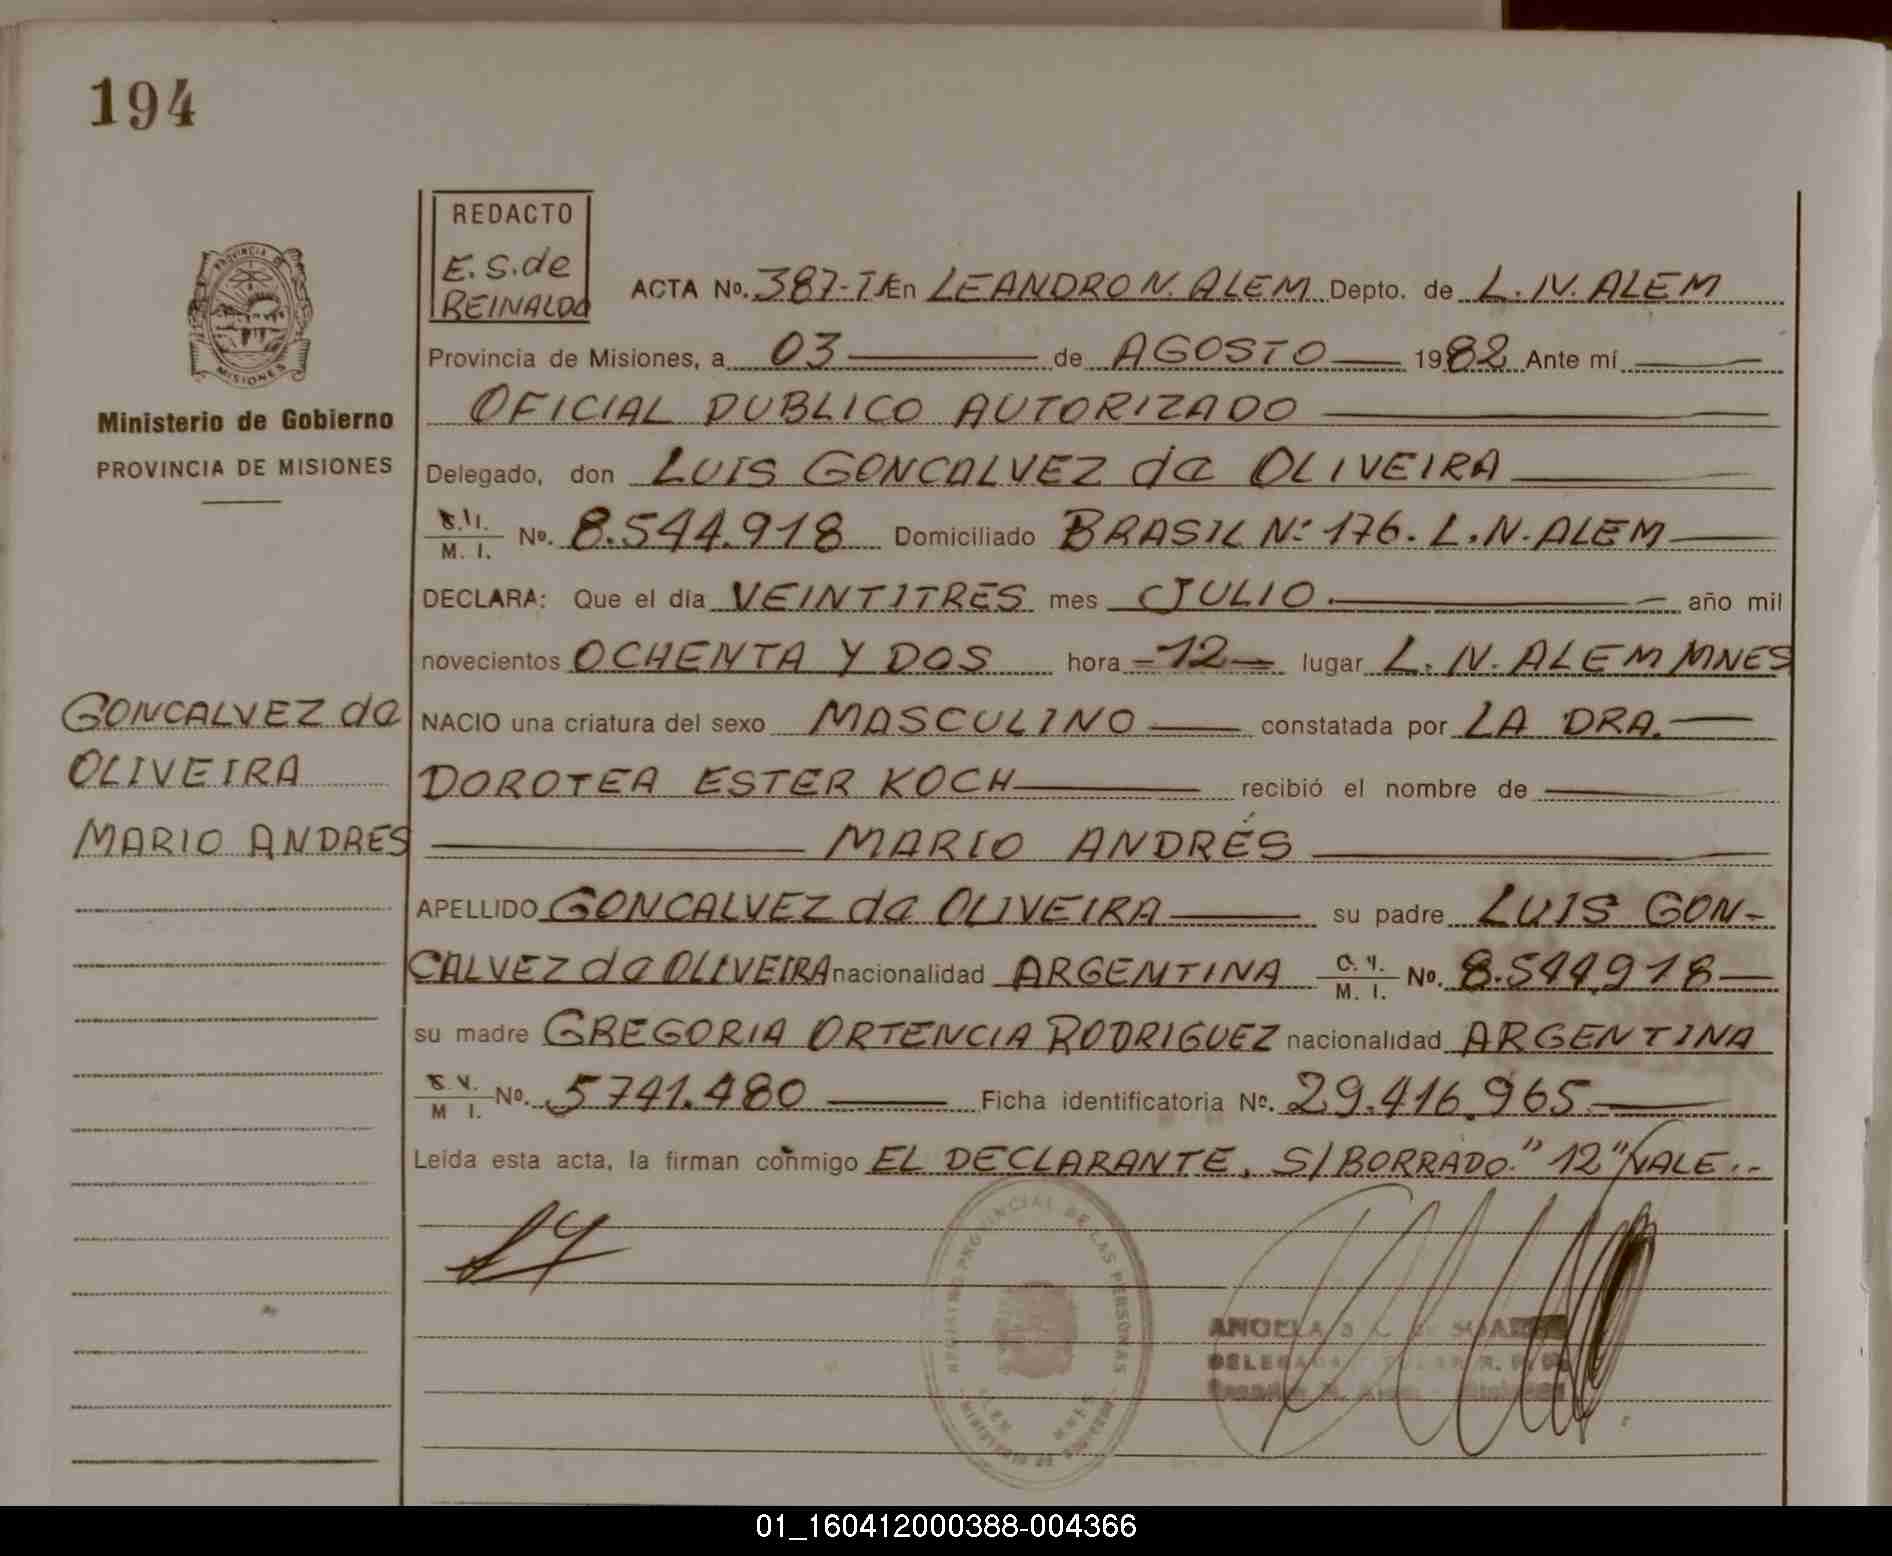 194
REDACTO
E. S. de
REINALDO
ACTA No. 387-TI En LEANDRO N. ALEM Depto. de L. N. ALEM
Provincia de Misiones, a 03 de AGOSTO 1982 Ante mí
OFICIAL PUBLICO AUTORIZADO
PROVINCIA DE
MISIONES
Ministerio de Gobierno
PROVINCIA DE MISIONES
Delegado, don LUIS GONCALVEZ da OLIVEIRA
M. I. No. 8.544.918 Domiciliado BRASIL Nº 176. L.N. ALEM
DECLARA: Que el día VEINTITRES mes JULIO año mil
novecientos OCHENTA Y DOS hora =12= lugar L. N. ALEM MNES
GONCALVEZ da
OLIVEIRA
MARIO ANDRES
NACIO una criatura del sexo MASCULINO constatada por LA DRA.
DOROTEA ESTER KOCH recibió el nombre de
MARIO ANDRÉS
APELLIDO GONCALVEZ da OLIVEIRA su padre LUIS GON-
CALVEZ da OLIVEIRA nacionalidad ARGENTINA M. I. No. 8.544.918
su madre GREGORIA ORTENCIA RODRIGUEZ nacionalidad ARGENTINA
M I. No. 5741.480 Ficha identificatoria No. 29.416.965
Leída esta acta, la firman conmigo EL DECLARANTE. S/BORRADO "12" VALE.-
REGISTRO PROVINCIAL DE LAS PERSONAS
01_160412000388-004366